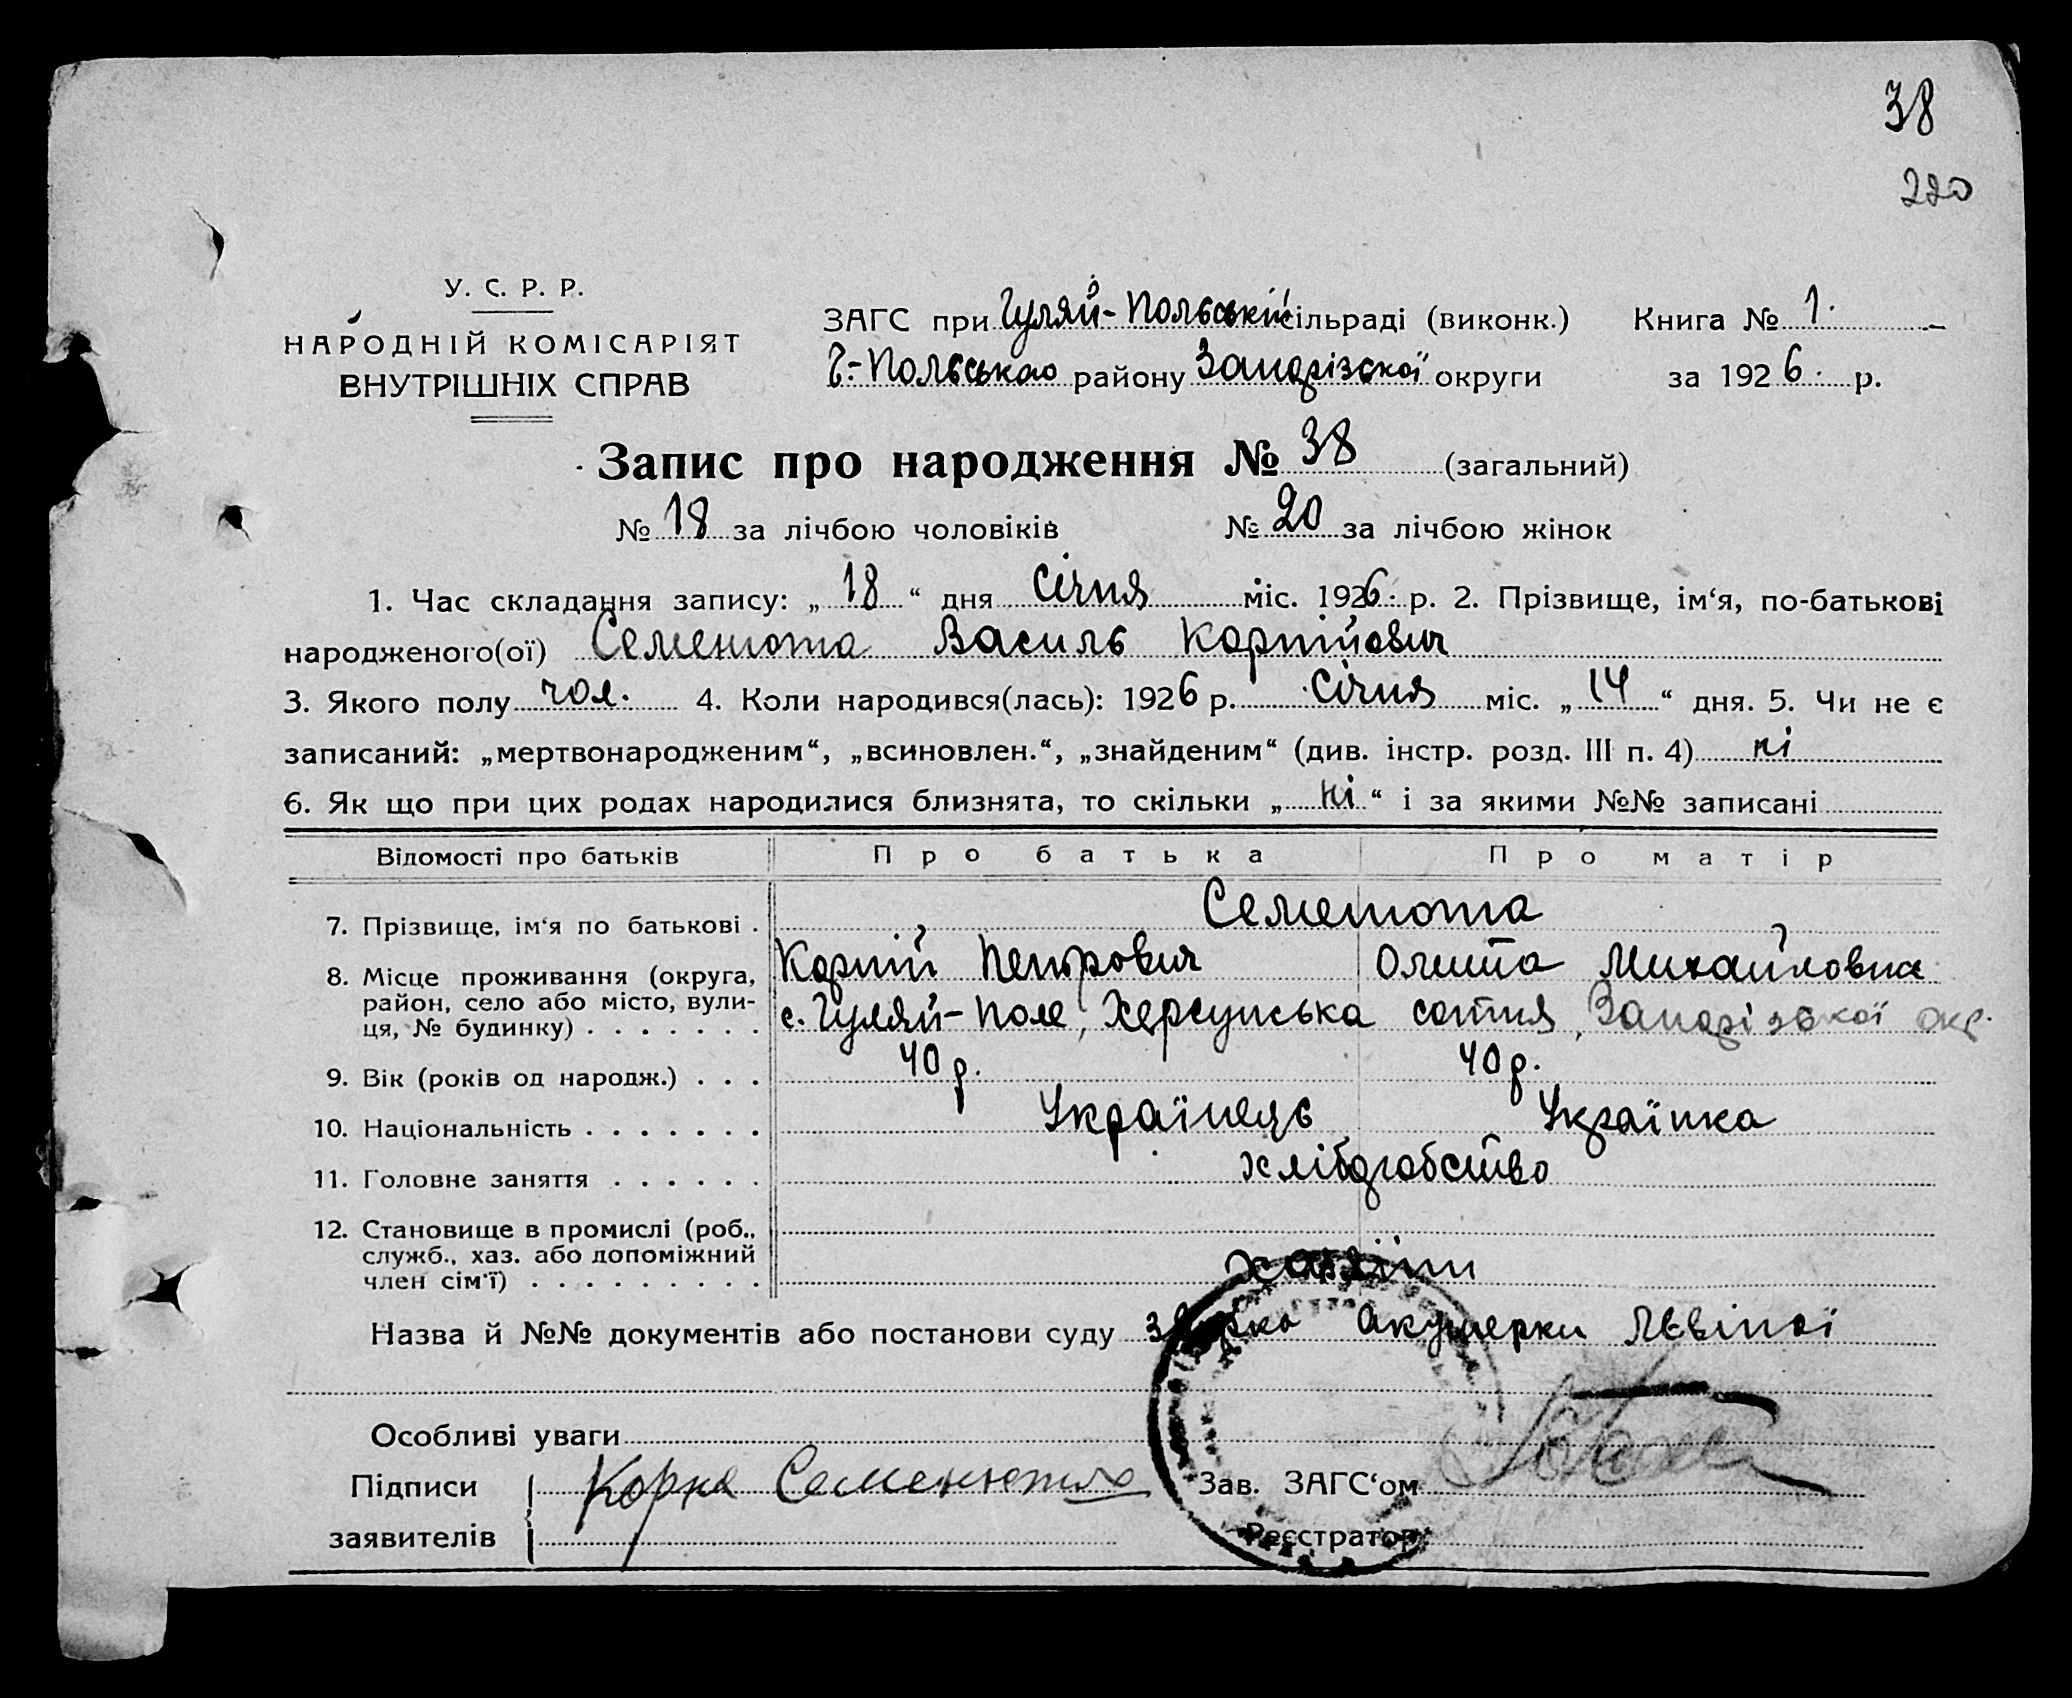 38
220
У. С. Р. Р.
НАРОДНІЙ КОМІСАРІЯТ
ВНУТРІШНІХ СПРАВ
ЗАГС при Гуляй-Польській сільраді (виконк.) Книга № 1.
Г-Польського району Запорізської округи за 1926 р.
Запис про народження № 38 (загальний)
№ 18 за лічбою чоловіків № 20 за лічбою жінок
1. Час складання запису: „18“ дня січня міс. 1926 р. 2. Прізвище, ім‘я, по-батькові
народженого(ої) Семенюта Василь Корнійович
3. Якого полу чол. 4. Коли народився(лась): 1926 р. січня міс. „14“ дня. 5. Чи не є
записаний: „мертвонародженим“, „всиновлен.“, „знайденим“ (див. інстр. розд. III п. 4) ні
6. Як що при цих родах народилися близнята, то скільки „ні“ і за якими №№ записані
Відомості про батьків Про батька Про матір
7. Прізвище, ім‘я по батькові . Семенюта
Корній Петрович Михайловна
8. Місце проживання (округа, район, село або місто, вулиця, № будинку) . . . . . . . с. Гуляй-Поле, Херсунська сотня, Запорізької окр.
9. Вік (років од народж.) . . . 40 р. 40 р.
10. Національність . . . . . . . Українець Українка
11. Головне заняття . . . . . . хліборобство
12. Становище в промислі (роб., служб., хаз. або допоміжний член сім‘ї) . . . . . . . . . . хазяїни
Назва й №№ документів або постанови суду Акушерки Лєвіної
Особливі уваги
Підписи Семенюта Зав. ЗАГС‘ом
заявителів Реєстратор